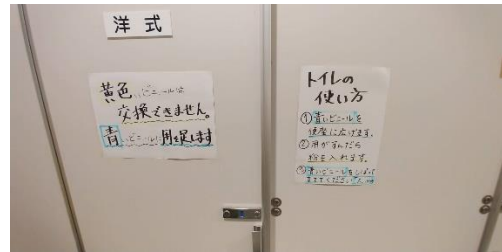 洋式
黄色いビニールは
交換できません。
青いビニールに用を足します
トイレの
使い方
①青いビニールを
便座に広げます。
②用がすんだら
粉を入れます。
③青いビニールをしばって